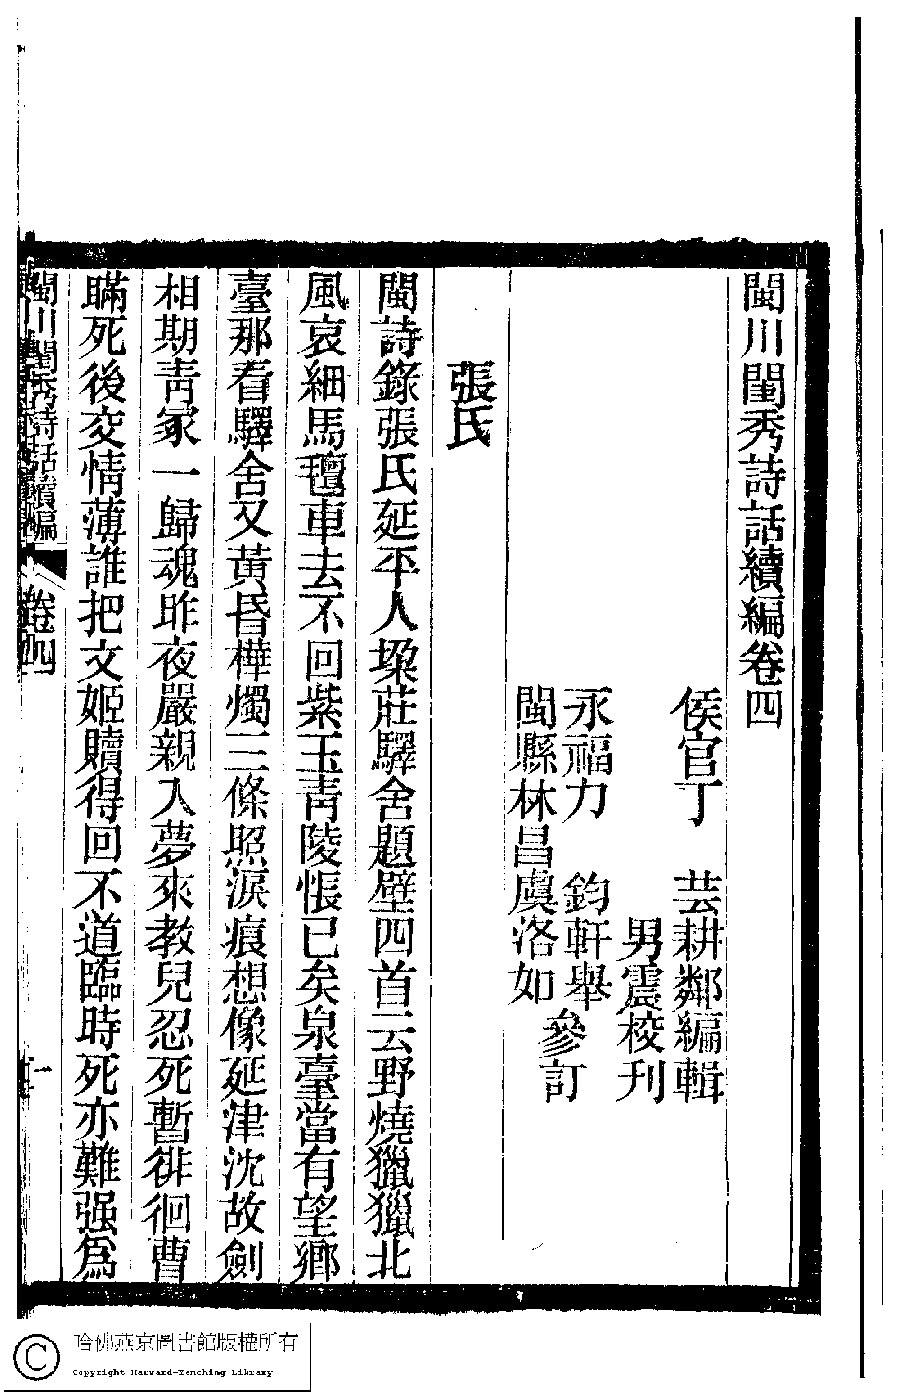 閩川閨秀詩話續編卷四
侯官丁　芸耕鄰編輯
男震校刋
永福力　鈞軒舉
閩縣林昌虞洛如
參訂
張氏
閩詩錄張氏延平人墚莊驛舍題壁四首云野燒獵獵北
風哀細馬氊車去不回紫玉青陵悵已矣泉臺當有望鄉
臺那看驛舍又黃昏樺燭三條照淚痕想像延津沈故劍
相期青冢一歸魂昨夜嚴親入夢來教兒忍死暫徘徊曹
瞞死後交情薄誰把文姬贖得回不道臨時死亦難强爲
閩川閨秀詩話續編
卷四
一
哈佛燕京圖書館版權所有
Copyright Harvard-Yenching Library